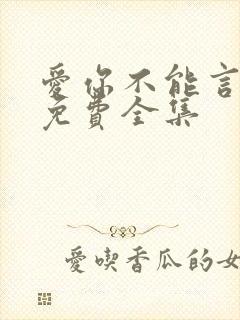 愛你不能言
免費全集
愛喫香瓜的女